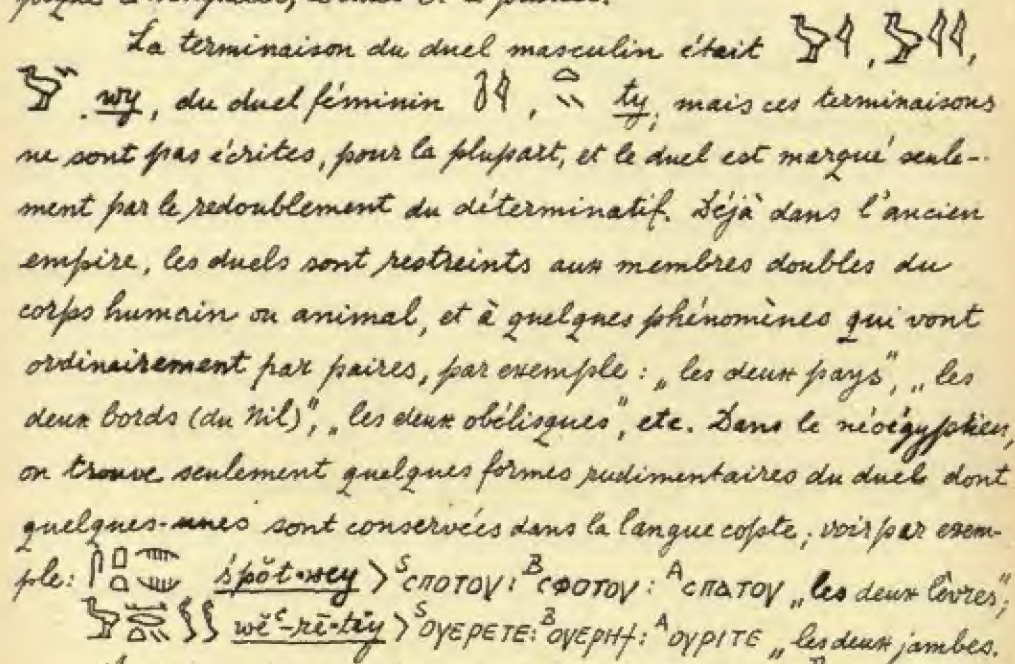 La terminaison du duel masculin était 𓅱𓇋, 𓅱𓇋𓇋,
𓅱𓏭. wy, du duel féminin 𓍘𓇋, 𓏏𓏭 ty, mais ces terminaisons
ne sont pas écrites, pour la plupart, et le duel est marqué seule-
ment par le redoublement du déterminatif. Déjà dans l'ancien
empire, les duels sont restreints aux membres doubles du
corps humain ou animal, et à quelques phénomènes qui vont
ordinairement par paires, par exemple : „les deux pays", „les
deux bords (du Nil)", „les deux obélisques", etc. Dans le néoégyptien,
on trouve seulement quelques formes rudimentaires du duel dont
quelques-unes sont conservées dans la langue copte; voir par exem-
ple: śpŏt·wey > ᔆⲥⲡⲟⲧⲟⲩ: ᴮⲥⲫⲟⲧⲟⲩ: ᴬⲥⲡⲁⲧⲟⲩ „les deux lèvres";
wĕʿ-rē-tĕy > ᔆⲟⲩⲉⲣⲉⲧⲉ: ᴮⲟⲩⲉⲣⲏϯ: ᴬⲟⲩⲣⲓⲧⲉ „les deux jambes.